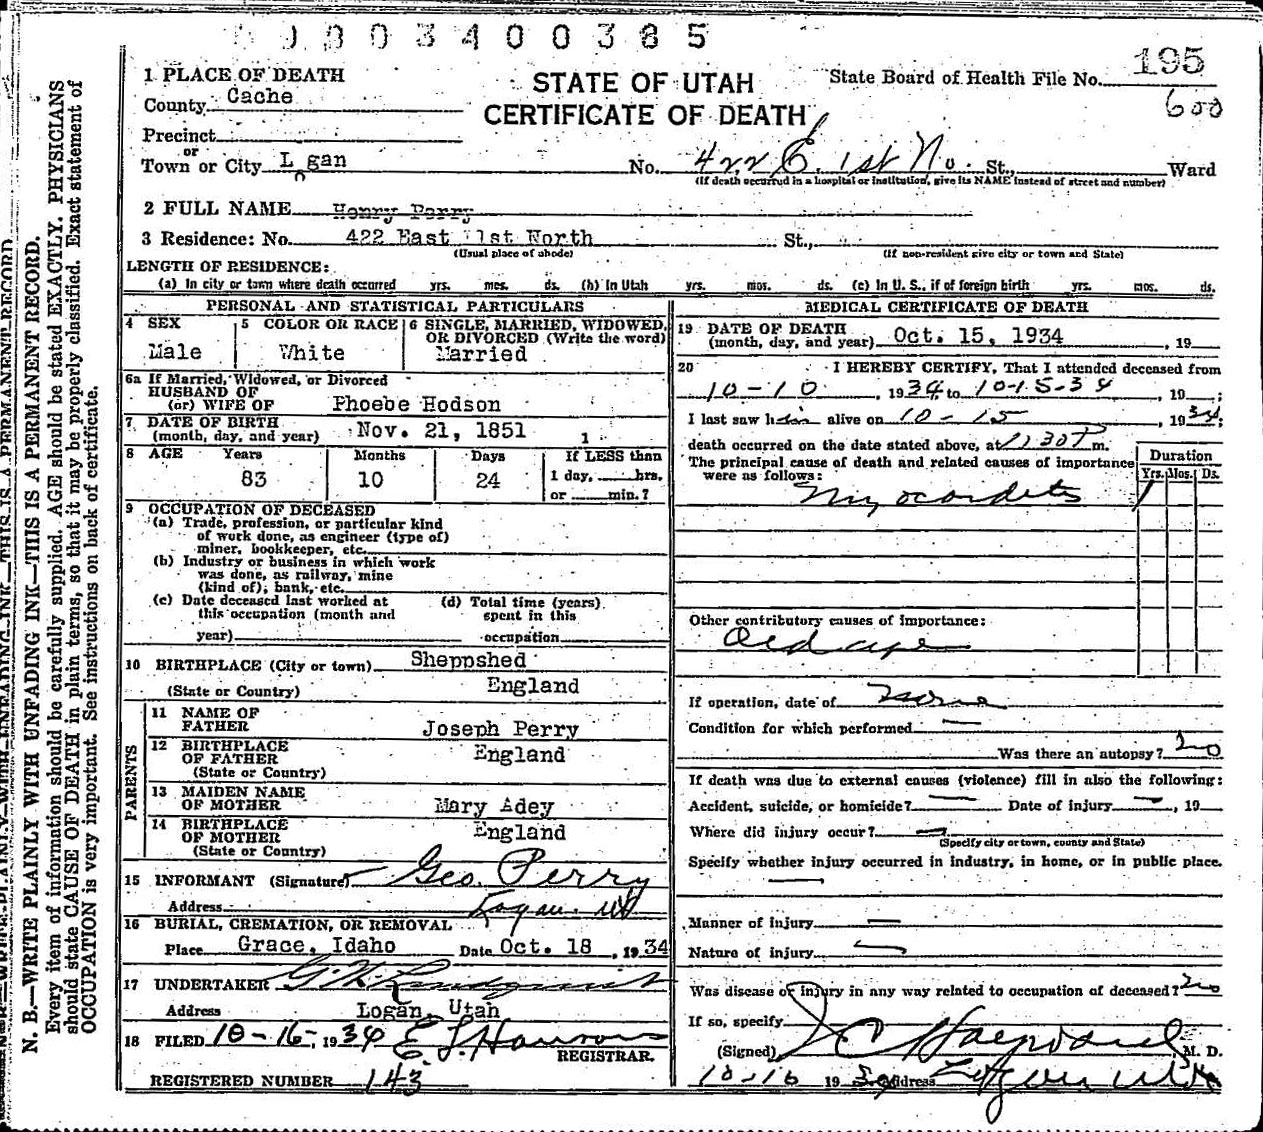 0003400365
195
600
STATE OF UTAH
CERTIFICATE OF DEATH
State Board of Health File No.
1 PLACE OF DEATH
County Cache
Precinct
or
Town or City Logan No. 422 E. 1st No. St., Ward
(If death occurred in a hospital or institution, give its NAME instead of street and number)
2 FULL NAME Henry Perry
3 Residence: No. 422 East 1st North St.,
(Usual place of abode) (If non-resident give city or town and State)
LENGTH OF RESIDENCE:
(a) In city or town where death occurred yrs. mos. ds. (b) In Utah yrs. mos. ds. (c) In U. S., if of foreign birth yrs. mos. ds.
PERSONAL AND STATISTICAL PARTICULARS
4 SEX Male
5 COLOR OR RACE White
6 SINGLE, MARRIED, WIDOWED, OR DIVORCED (Write the word) Married
6a If Married, Widowed, or Divorced
HUSBAND OF
(or) WIFE OF Phoebe Hodson
7 DATE OF BIRTH
(month, day, and year) Nov. 21, 1851 1
8 AGE Years Months Days If LESS than
83 10 24 1 day, hrs.
or min.?
9 OCCUPATION OF DECEASED
(a) Trade, profession, or particular kind
of work done, as engineer (type of)
miner, bookkeeper, etc.
(b) Industry or business in which work
was done, as railway, mine
(kind of), bank, etc.
(c) Date deceased last worked at
this occupation (month and
year)
(d) Total time (years)
spent in this
occupation
10 BIRTHPLACE (City or town) Sheppshed
(State or Country) England
PARENTS
11 NAME OF
FATHER Joseph Perry
12 BIRTHPLACE
OF FATHER England
(State or Country)
13 MAIDEN NAME
OF MOTHER Mary Adey
14 BIRTHPLACE
OF MOTHER England
(State or Country)
15 INFORMANT (Signature) Geo. Perry
Address Logan. Ut
16 BURIAL, CREMATION, OR REMOVAL
Place Grace, Idaho Date Oct. 18, 1934
17 UNDERTAKER G. W. Lindquist
Address Logan, Utah
18 FILED 10-16-, 1934
REGISTRAR.
REGISTERED NUMBER 143
MEDICAL CERTIFICATE OF DEATH
19 DATE OF DEATH
(month, day, and year) Oct. 15, 1934, 19
20 I HEREBY CERTIFY, That I attended deceased from
10-10, 1934 to 10-15-34, 19;
I last saw him alive on 10-15, 1934;
death occurred on the date stated above, at m.
The principal cause of death and related causes of importance
were as follows:
Duration
Yrs. Mos. Ds.
Myocarditis 1
Other contributory causes of importance:
Old age
If operation, date of None
Condition for which performed —
Was there an autopsy? No
If death was due to external causes (violence) fill in also the following:
Accident, suicide, or homicide? — Date of injury —, 19
Where did injury occur? —
(Specify city or town, county and State)
Specify whether injury occurred in industry, in home, or in public place.
—
Manner of injury —
Nature of injury —
Was disease or injury in any way related to occupation of deceased? No
If so, specify
(Signed) M. D.
10-16 1934 Address Logan Utah
N. B.—WRITE PLAINLY WITH UNFADING INK—THIS IS A PERMANENT RECORD.
Every item of information should be carefully supplied. AGE should be stated EXACTLY. PHYSICIANS
should state CAUSE OF DEATH in plain terms, so that it may be properly classified. Exact statement of
OCCUPATION is very important. See instructions on back of certificate.